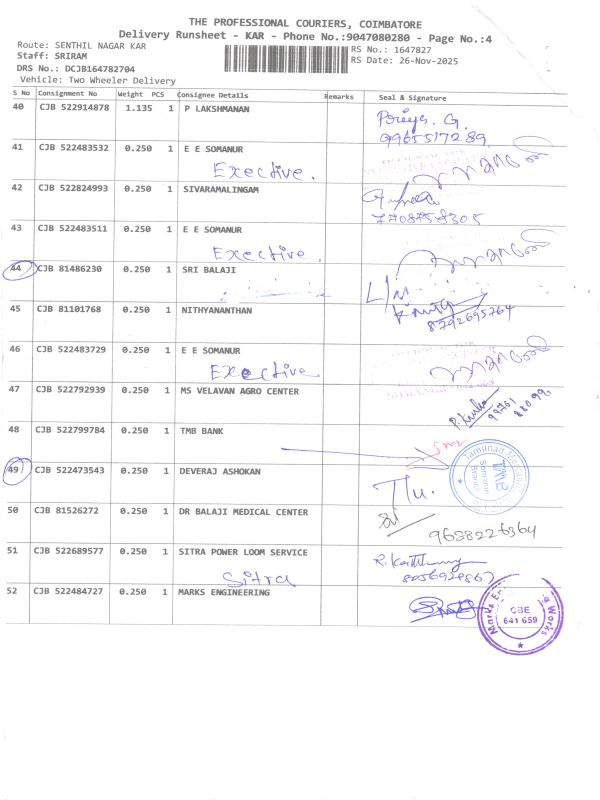 THE PROFESSIONAL COURIERS, COIMBATORE
Delivery Runsheet - KAR - Phone No.:9047080280 - Page No.:4
Route: SENTHIL NAGAR KAR
RS No.: 1647827
Staff: SRIRAM
RS Date: 26-Nov-2025
DRS No.: DCJB164782704
Vehicle: Two Wheeler Delivery
S No Consignment No Weight PCS Consignee Details Remarks Seal & Signature
40 CJB 522914878 1.135 1 P LAKSHMANAN
Priya. G.
9965517289
41 CJB 522483532 0.250 1 E E SOMANUR
Exective.
42 CJB 522824993 0.250 1 SIVARAMALINGAM
7708758305
43 CJB 522483511 0.250 1 E E SOMANUR
Exective.
44 CJB 81486230 0.250 1 SRI BALAJI
45 CJB 81101768 0.250 1 NITHYANANTHAN
8792695764
46 CJB 522483729 0.250 1 E E SOMANUR
Exective
47 CJB 522792939 0.250 1 MS VELAVAN AGRO CENTER
48 CJB 522799784 0.250 1 TMB BANK
TMB
Somanur
Branch
49 CJB 522473543 0.250 1 DEVERAJ ASHOKAN
50 CJB 81526272 0.250 1 DR BALAJI MEDICAL CENTER
9688226364
51 CJB 522689577 0.250 1 SITRA POWER LOOM SERVICE
Sitra
52 CJB 522484727 0.250 1 MARKS ENGINEERING
CBE
641 659